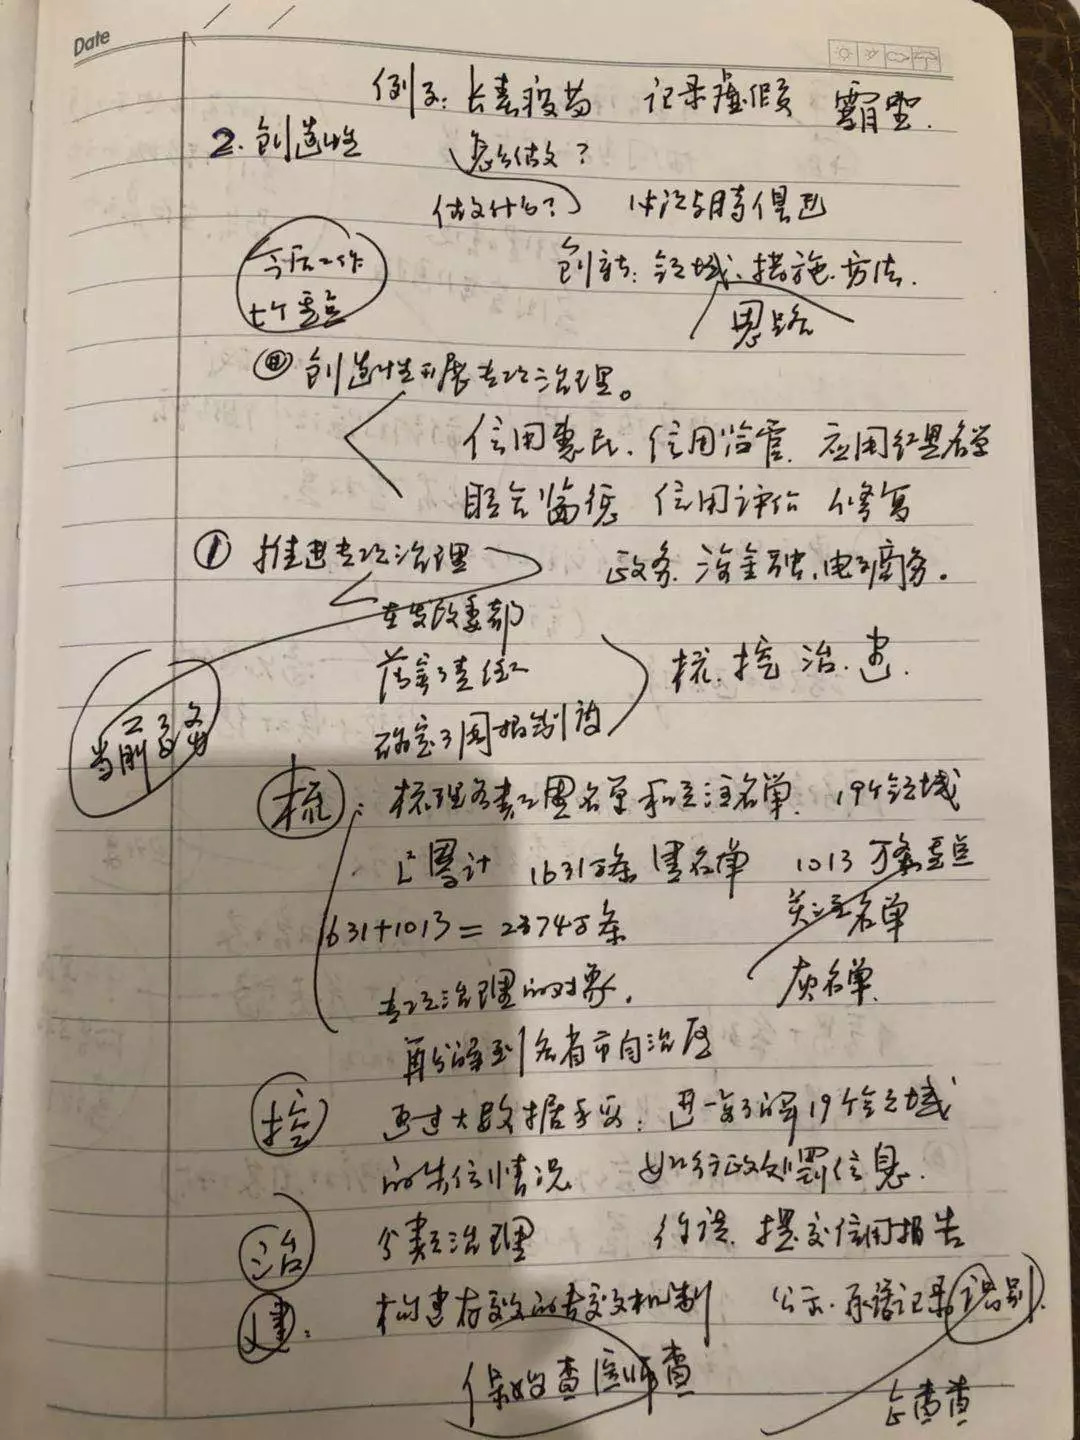 Date
例子：长春疫苗 记录虚假
2. 创造性 怎么做？
做什么？ 与时俱进
今后工作 创新：领域、措施、方法.
七个重点 思路
④ 创造性开展专项治理。
信用惠民、信用监管、应用红黑名单
联合惩 信用评价 修复
① 推进专项治理 政务、涉金融、电子商务。
发改委部
落实了责任 梳、挖、治、建.
当前
梳：梳理各类黑名单和关注名单. 19个领域
累计 1631万条 黑名单 1013万条重点
1631+1013=2374万条 关注名单
专项治理的对象. 灰名单.
再分解到各省市自治区
挖 通过大数据手段：进一步了解19个领域
的失信情况 如行政处罚信息.
治 分类治理 约谈. 提交信用报告
建： 构建有效的长效机制 公示.承诺记录 识别.
保姆查 医师查